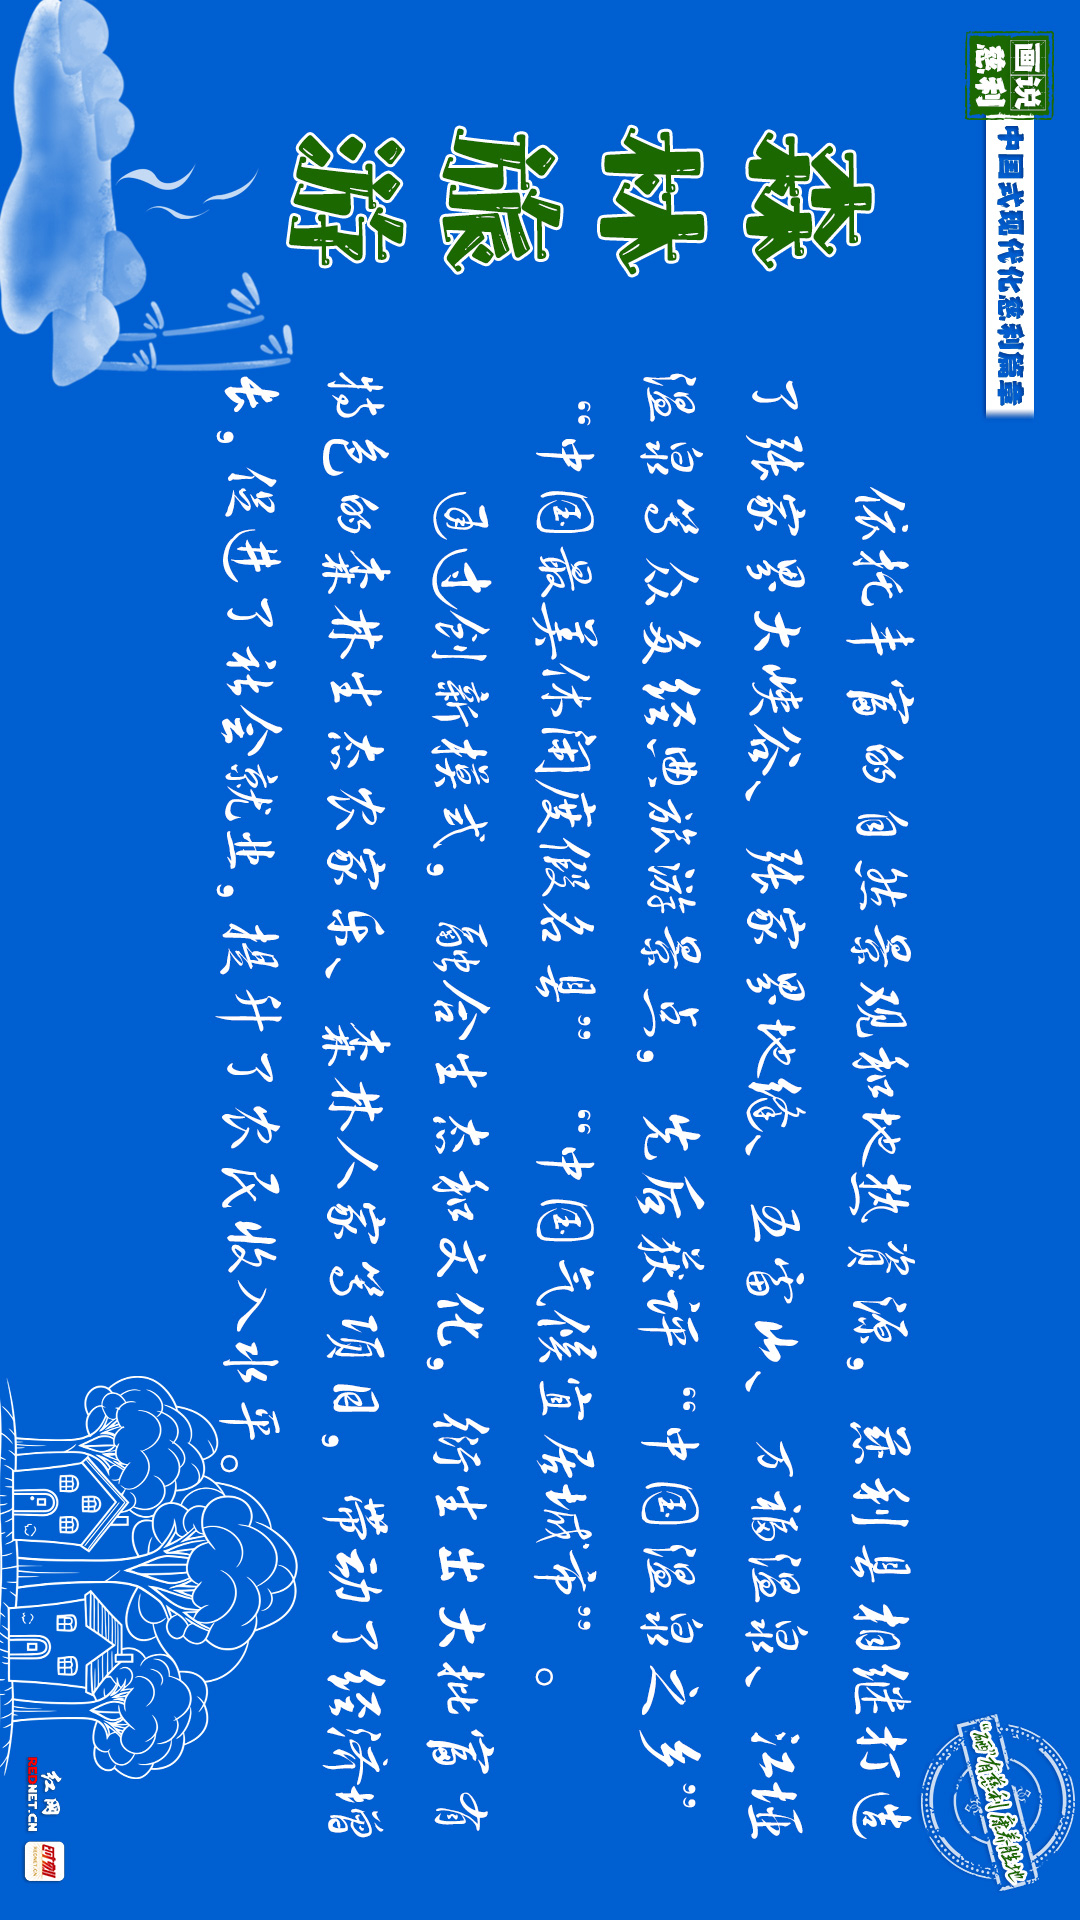 画说
慈利
中国式现代化慈利篇章
森林旅游
依托丰富的自然景观和地热资源，慈利县相继打造
了张家界大峡谷、张家界地缝、五雷山、万福温泉、江垭
温泉等众多经典旅游景点，先后获评“中国温泉之乡”
“中国最美休闲度假名县”“中国气候宜居城市”。
通过创新模式，融合生态和文化，衍生出大批富有
特色的森林生态农家乐、森林人家等项目，带动了经济增
长，促进了社会就业，提升了农民收入水平。
慈利康养胜地
红网
REDNET.CN
时刻
REDNET.CN